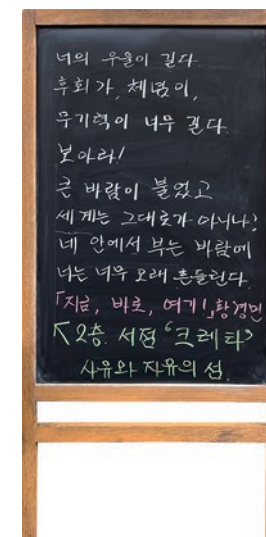 너의 우울이 길다.
후회가, 체념이,
무기력이 너무 길다.
보아라!
큰 바람이 불었고
세계는 그대로가 아니냐?
네 안에서 부는 바람에
너는 너무 오래 흔들린다.
「지금, 바로, 여기!」황경민
↸ 2층. 서점 ‘크레타’
사유와 자유의 섬.